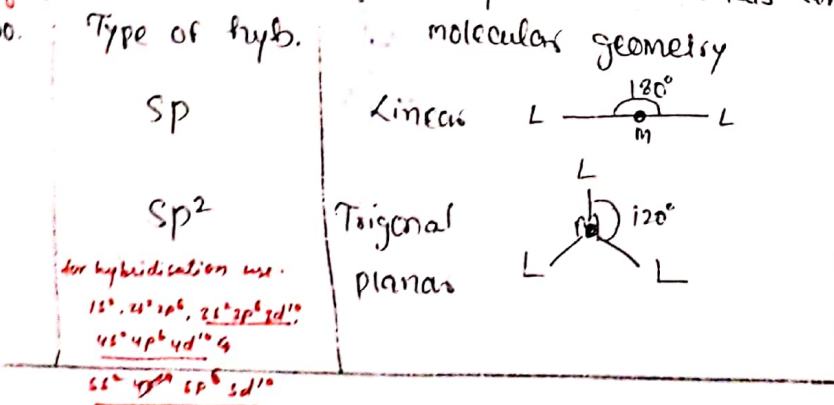 0. Type of hyb. molecular geometry
sp Linear L 180° L
M
L
sp² Trigonal 120°
planar L L
for hybridisation use.
1s², 2s² 2p⁶, 3s² 3p⁶ 3d¹⁰,
4s² 4p⁶ 4d¹⁰
5s² 5p⁶ 5d¹⁰